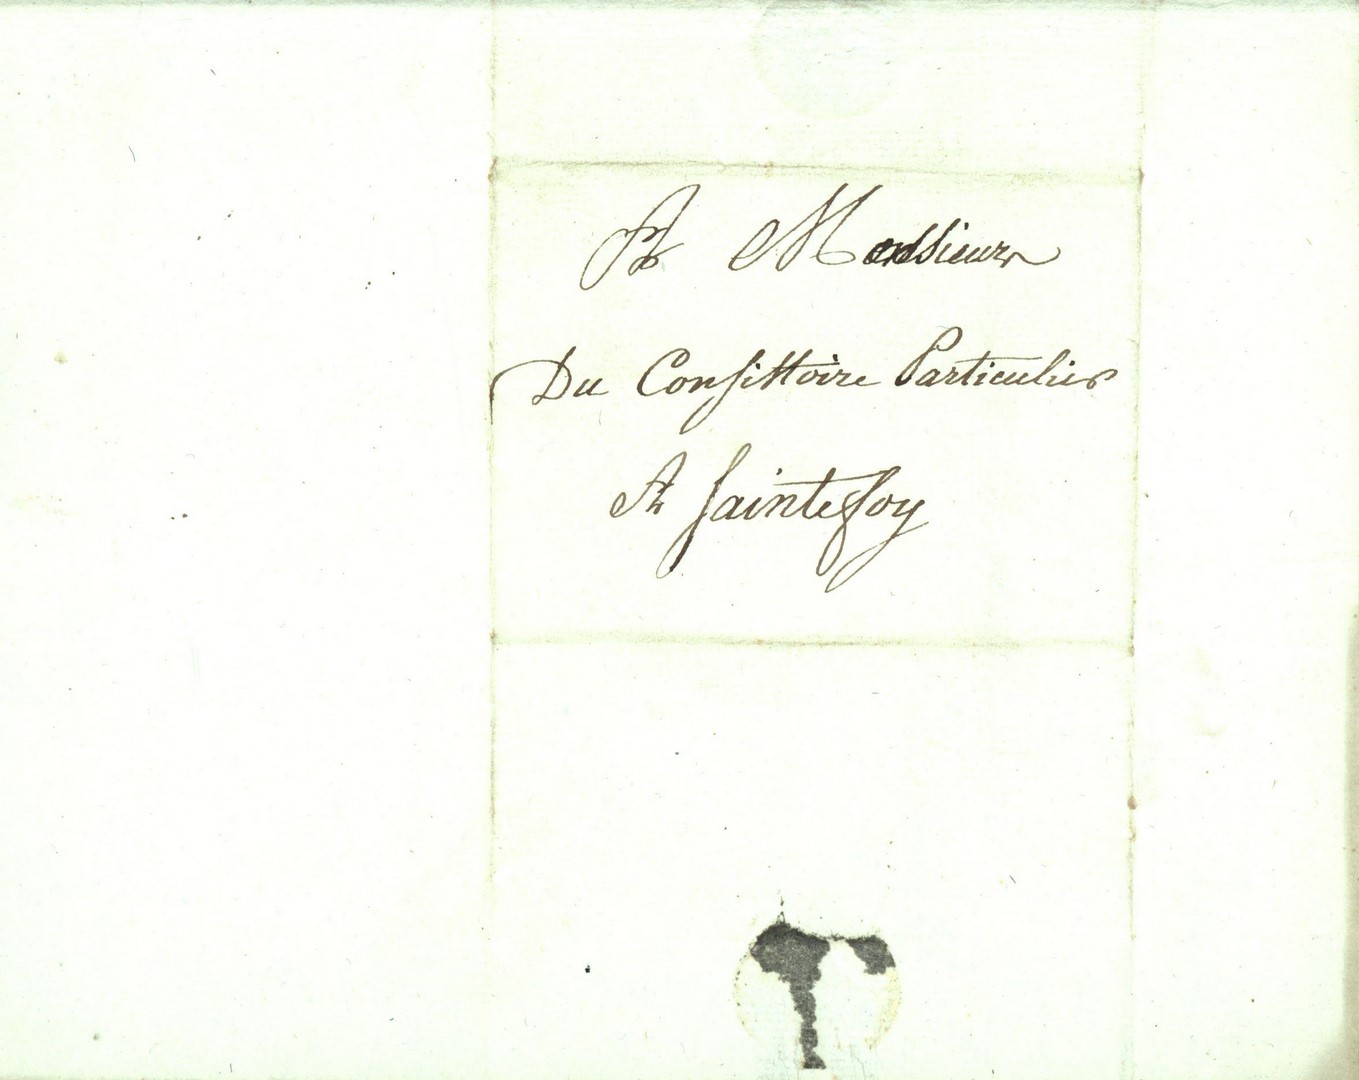 A Monssieur
Du Consittoire Particulier
A Saintefoy